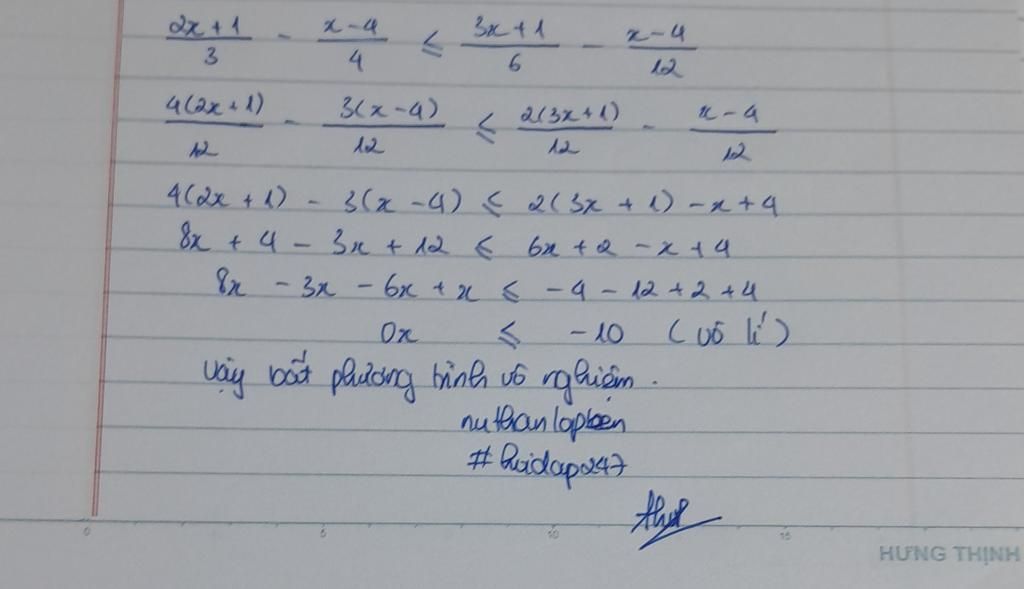 (2x+1)/3 - (x-4)/4 ≤ (3x+1)/6 - (x-4)/12
4(2x+1)/12 - 3(x-4)/12 ≤ 2(3x+1)/12 - (x-4)/12
4(2x+1) - 3(x-4) ≤ 2(3x+1) - x+4
8x + 4 - 3x + 12 ≤ 6x + 2 - x + 4
8x - 3x - 6x + x ≤ -4 - 12 + 2 + 4
0x ≤ -10 (vô lí)
Vậy bất phương trình vô nghiệm.
#hoidap247
0 5 10 15
HƯNG THỊNH